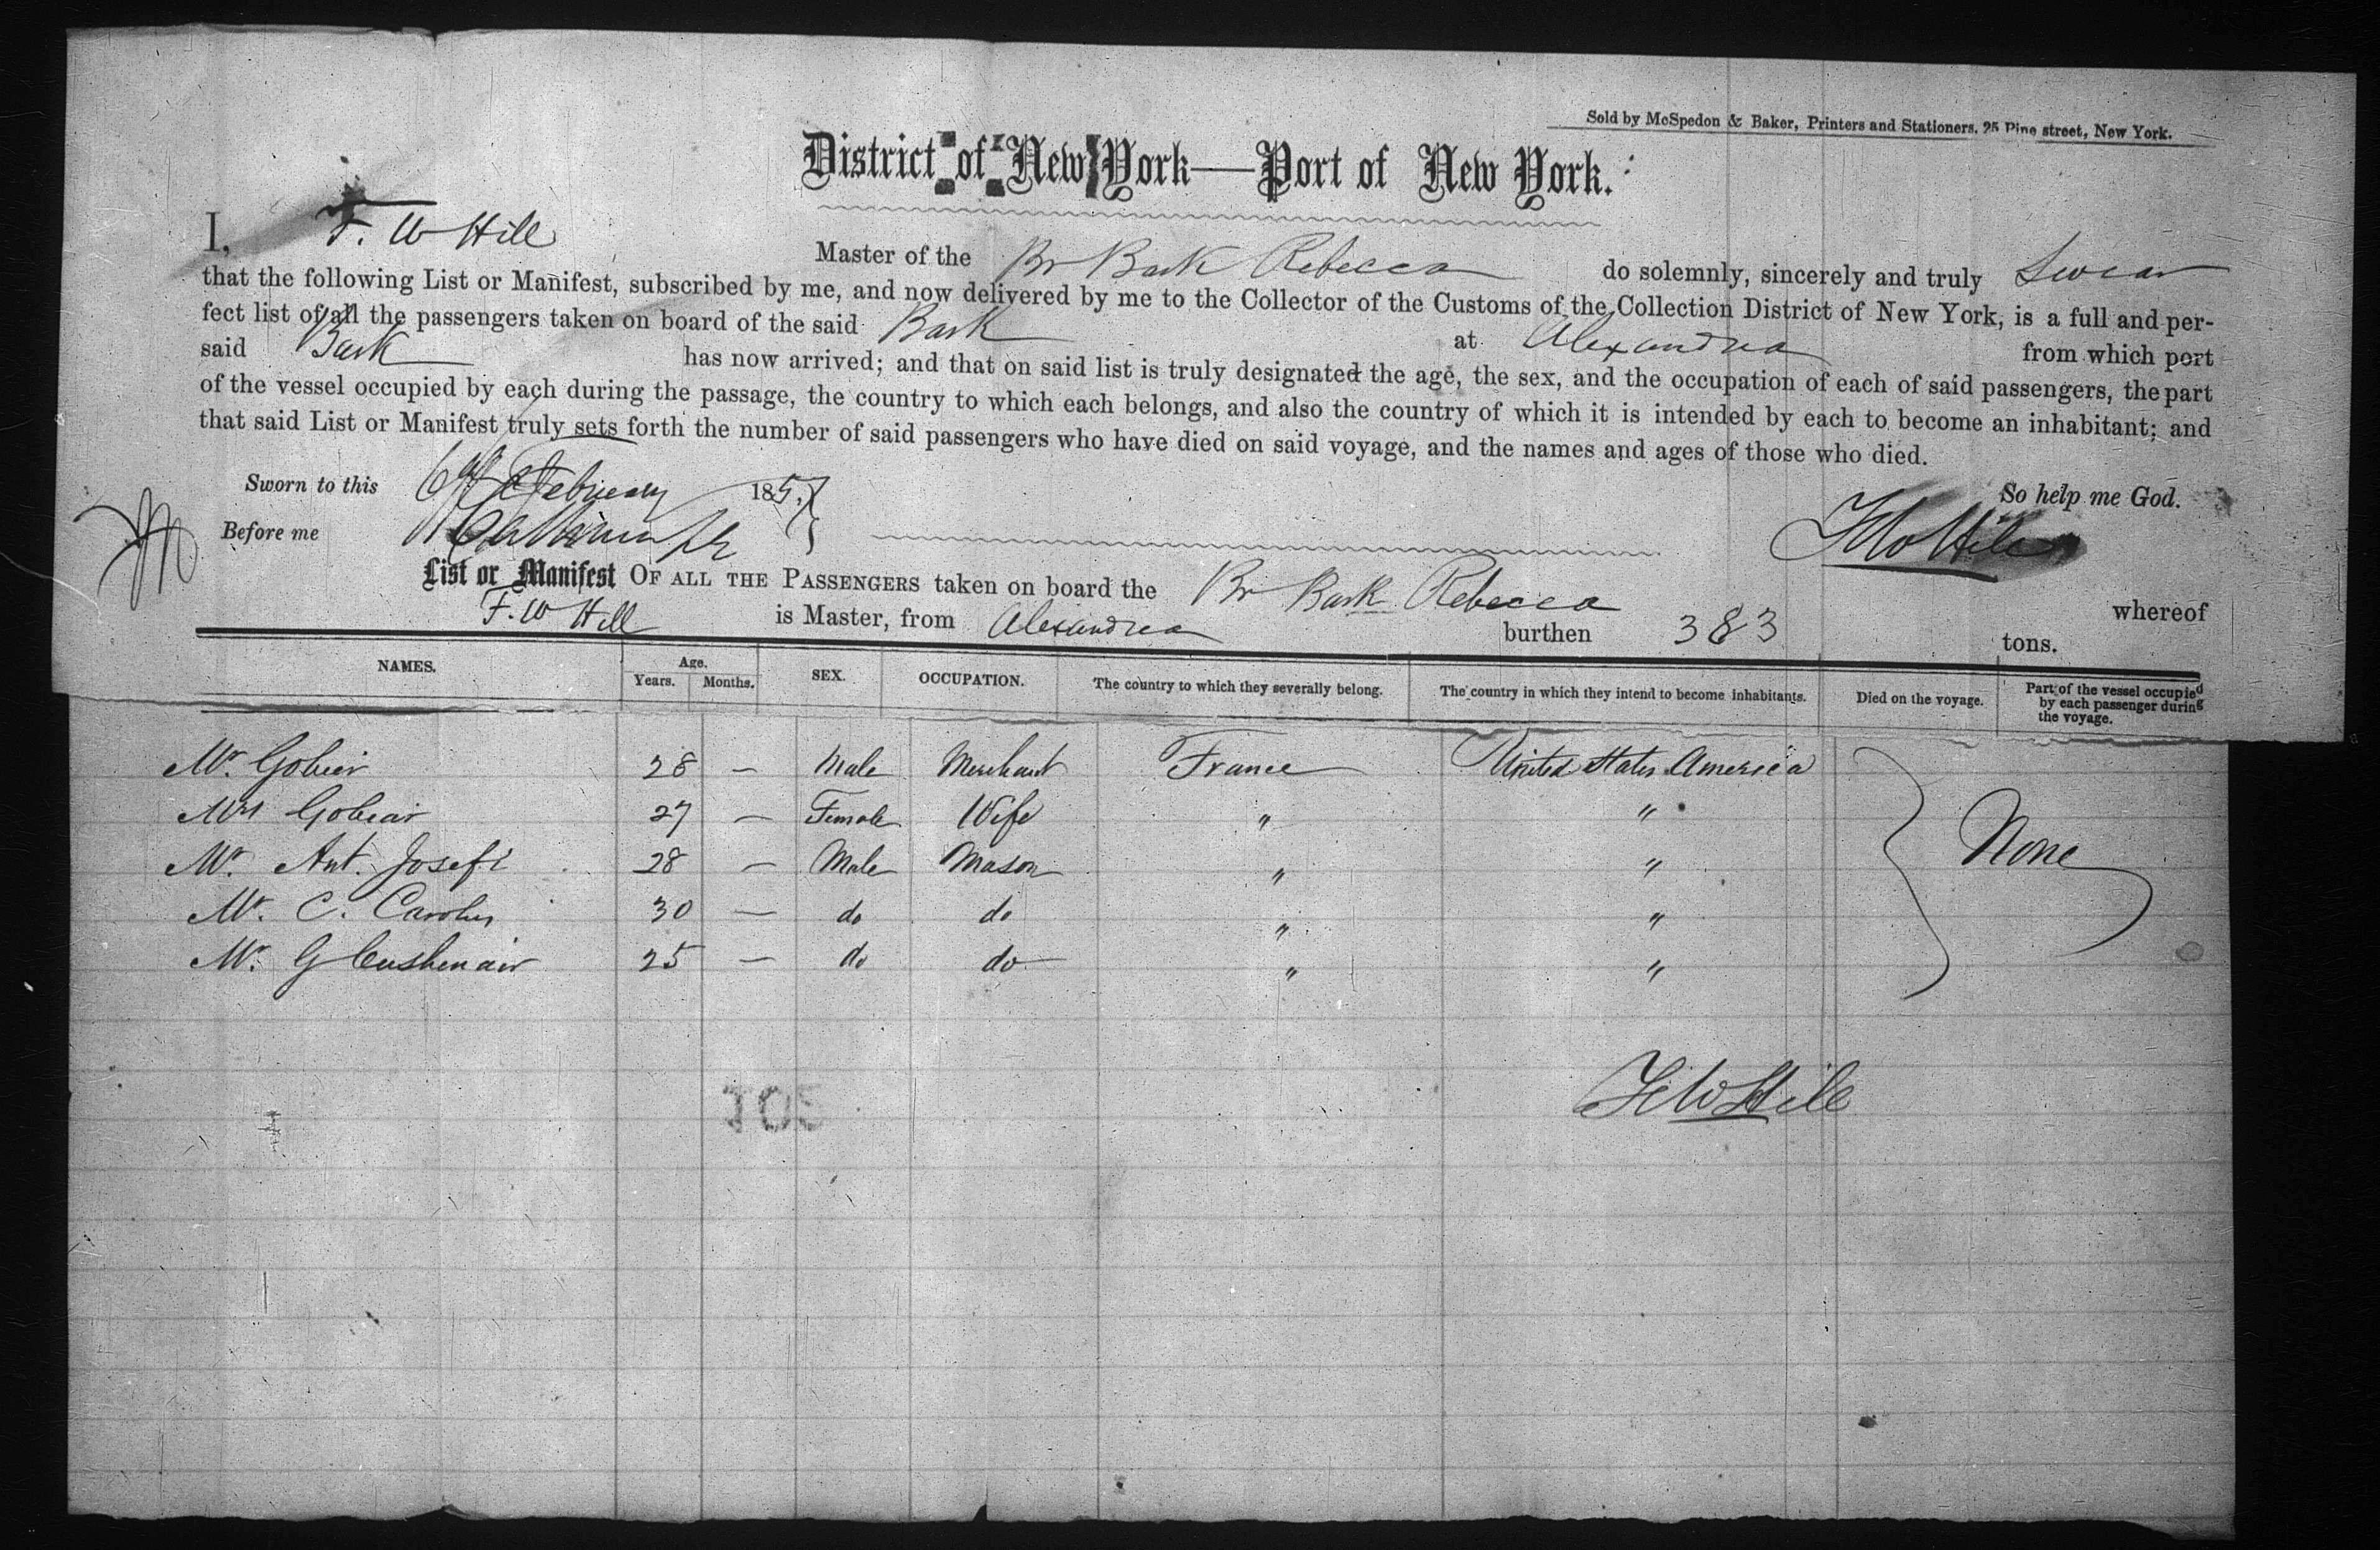 Sold by McSpedon & Baker, Printers and Stationers, 25 Pine street, New York.
District of New York—Port of New York.
I, F. W Hill Master of the Br Bark Rebecca do solemnly, sincerely and truly Swear
that the following List or Manifest, subscribed by me, and now delivered by me to the Collector of the Customs of the Collection District of New York, is a full and per-
fect list of all the passengers taken on board of the said Bark at Alexandrea from which port
said Bark has now arrived; and that on said list is truly designated the age, the sex, and the occupation of each of said passengers, the part
of the vessel occupied by each during the passage, the country to which each belongs, and also the country of which it is intended by each to become an inhabitant; and
that said List or Manifest truly sets forth the number of said passengers who have died on said voyage, and the names and ages of those who died.
Sworn to this 6th February 185 So help me God.
Before me F W Hill
List or Manifest OF ALL THE PASSENGERS taken on board the Br Bark Rebecca whereof
F. W Hill is Master, from Alexandrea burthen 383 tons.
NAMES. Age. Years. Months. SEX. OCCUPATION. The country to which they severally belong. The country in which they intend to become inhabitants. Died on the voyage. Part of the vessel occupied by each passenger during the voyage.
Mr. Gobier 28 — Male Merchant France United States America
Mrs Gobear 27 — Female Wife " "
Mr. Ant. Josefi 28 — Male Mason " " None
Mr. C. 30 — do do " "
Mr. G 25 — do do " "
F W Hill